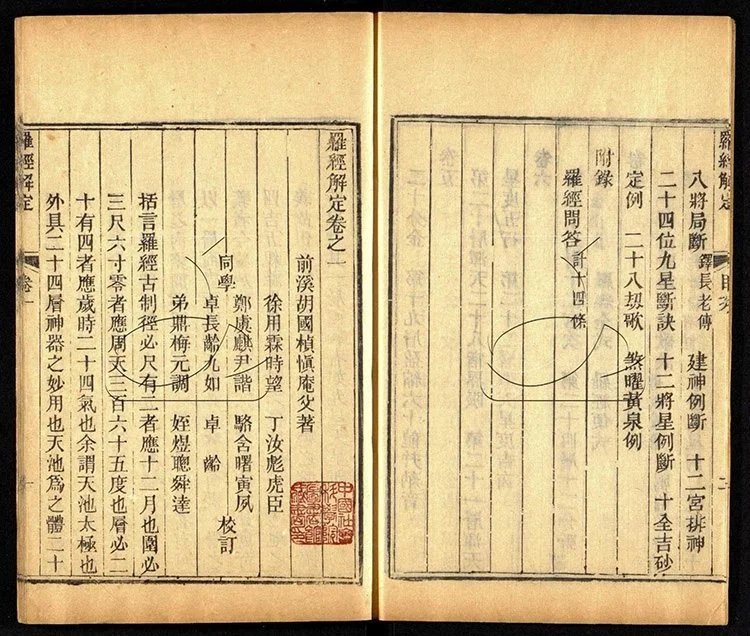 羅經解定 目次
八將局斷 鐸長老傳 建神例斷 十二宮排神
二十四位九星斷訣 十二將星例斷 十全吉砂
定例 二十八刼歌 煞曜黃泉例
附錄
羅經問答 計十四條
二
羅經解定卷之一
前溪胡國楨愼庵父著
徐用霖時望 丁汝彪虎臣
同學 鄭虞麒尹諧 駱舍曙寅夙 校訂
卓長齡九如 卓 齡
弟鼎梅元調 姪煜聰舜達
括言羅經古制徑必尺有二者應十二月也圍必
三尺六寸零者應周天三百六十五度也層必二
十有四者應歲時二十四氣也余謂天池太極也
外具二十四層神器之妙用也天池爲之體二十
羅經解定 卷一